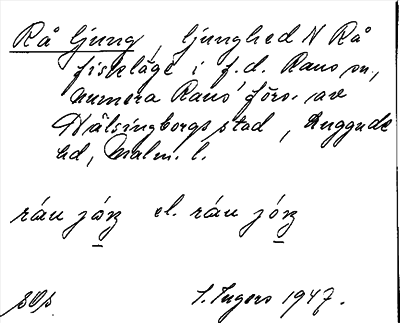 Rå ljung, ljunghed N Rå
fiskeläge i f.d. Raus sn.,
numera Raus förs. av
Hälsingborgs stad, Luggude
hd, Malm. l.
råu jóŋ el. råu jóŋ
S. Ingers 1947.